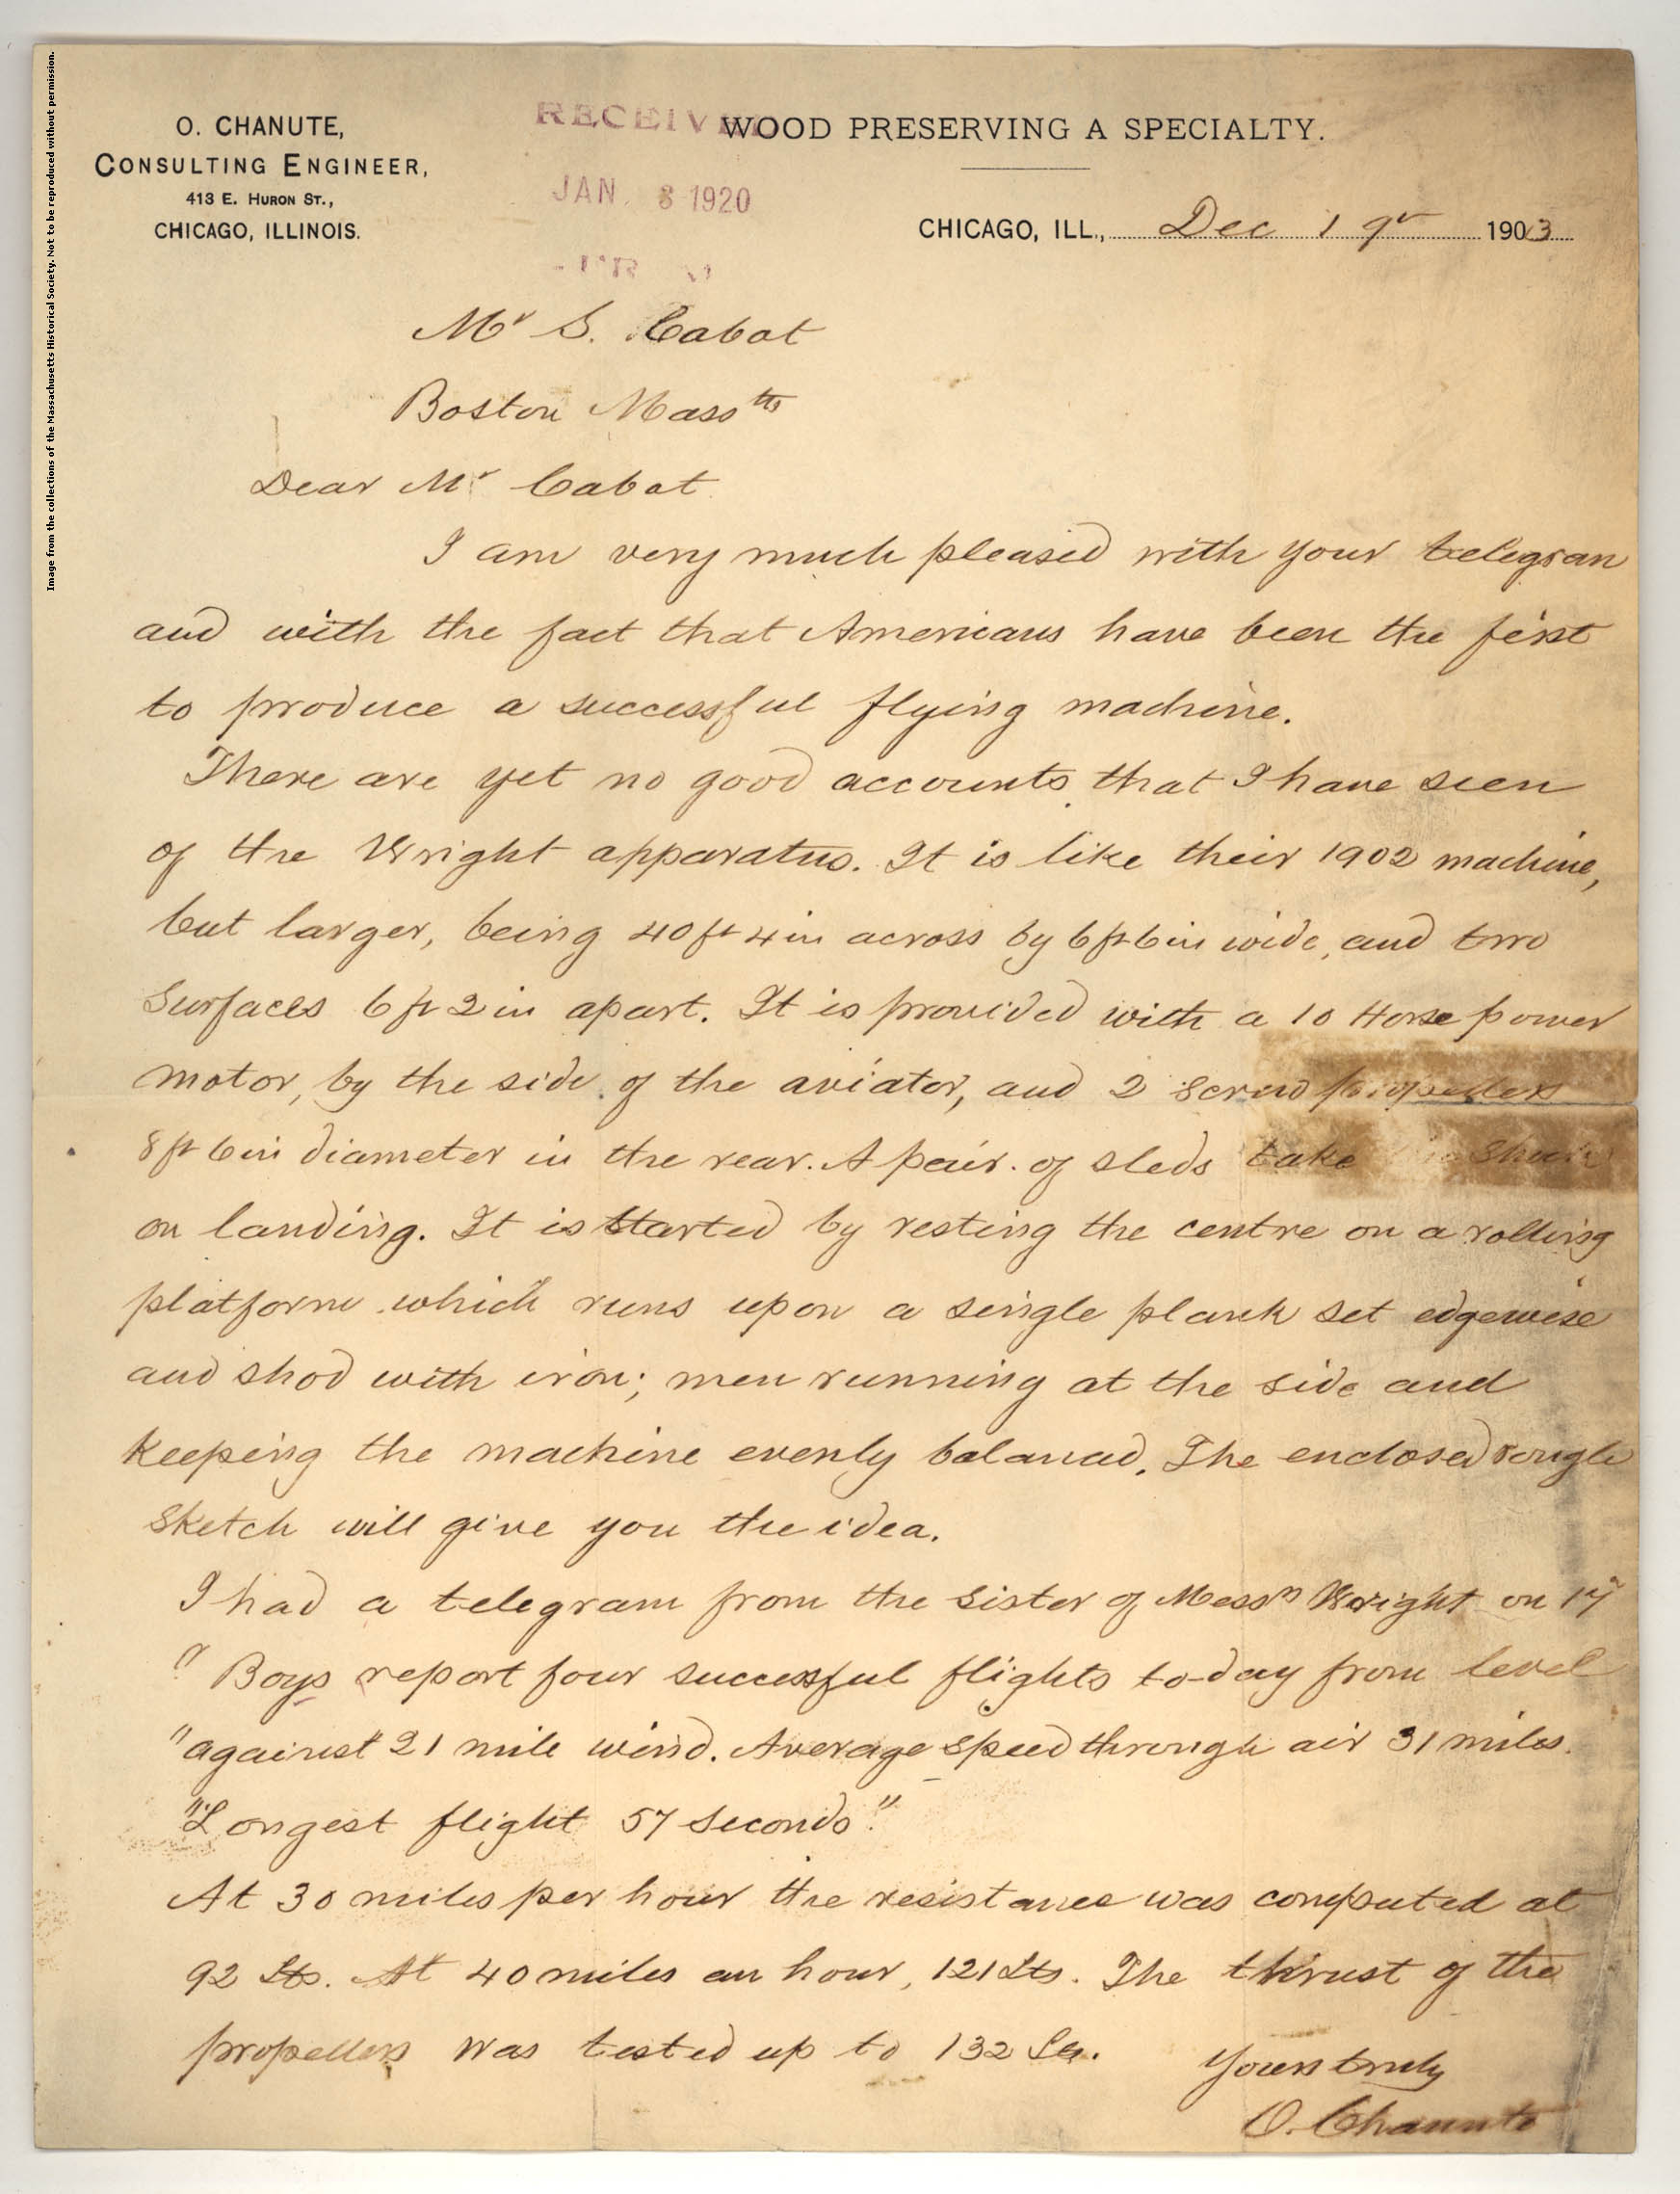 Image from the collections of the Massachusetts Historical Society. Not to be reproduced without permission.
O. CHANUTE,
CONSULTING ENGINEER,
413 E. HURON ST.,
CHICAGO, ILLINOIS.
RECEIVED
JAN. 8 1920
WOOD PRESERVING A SPECIALTY.
CHICAGO, ILL., Dec 19th 1903
Mr S. Cabot
Boston Massts
Dear Mr Cabot
I am very much pleased with your telegram
and with the fact that Americans have been the first
to produce a successful flying machine.
There are yet no good accounts that I have seen
of the Wright apparatus. It is like their 1902 machine,
but larger, being 40 ft 4 in across by 6 ft 6 in wide, and two
surfaces 6 ft 2 in apart. It is provided with a 10 Horse power
motor, by the side of the aviator, and 2 screw propellers
8 ft 6 in diameter in the rear. A pair of sleds take
on landing. It is started by resting the centre on a rolling
platform which runs upon a single plank set edgewise
and shod with iron; men running at the side and
keeping the machine evenly balanced. The enclosed rough
sketch will give you the idea.
I had a telegram from the sister of Messrs Wright on 17
"Boys report four successful flights to-day from level
"against 21 mile wind. Average speed through air 31 miles.
"Longest flight 57 seconds."
At 30 miles per hour the resistance was computed at
92 lbs. At 40 miles an hour, 121 lbs. The thrust of the
propellers was tested up to 132 lbs.
Yours truly
O. Chanute